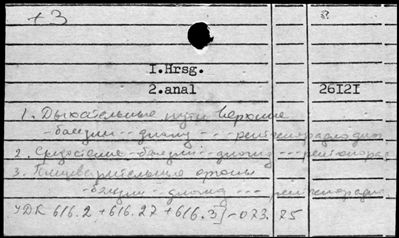 +3
I.Hrsg.
2.anal 26I2I
1. Дыхательные пути верхние
- болезни -- диагн --- рентгенорадиодиаг
2. Средостение - болезни -- диагн --- рентгенорад
3. Пищеварительные органы
- болезни -- диагн --- рентгенорадио
УДК 616.2 + 616.27 + 616.3] - 073.75